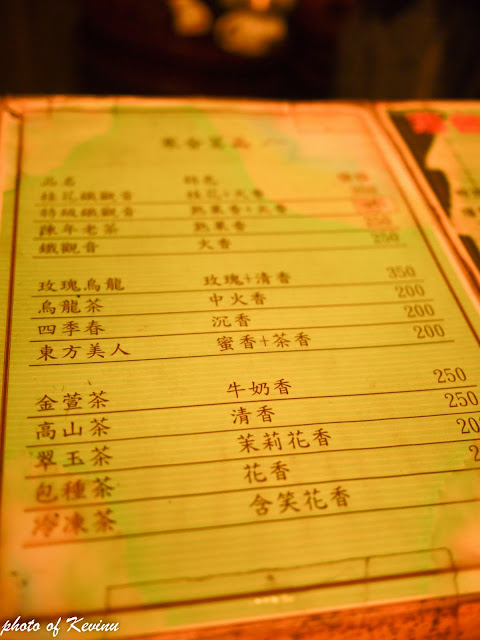 品名
桂花鐵觀音 桂花+火香
特級鐵觀音 熟果香+火香
陳年老茶 熟果香
鐵觀音 火香 250
玫瑰烏龍 玫瑰+清香 350
烏龍茶 中火香 200
四季春 沉香 200
東方美人 蜜香+茶香 200
金萱茶 牛奶香 250
高山茶 清香 250
翠玉茶 茉莉花香 20
包種茶 花香 2
冷凍茶 含笑花香
photo of Kevinu